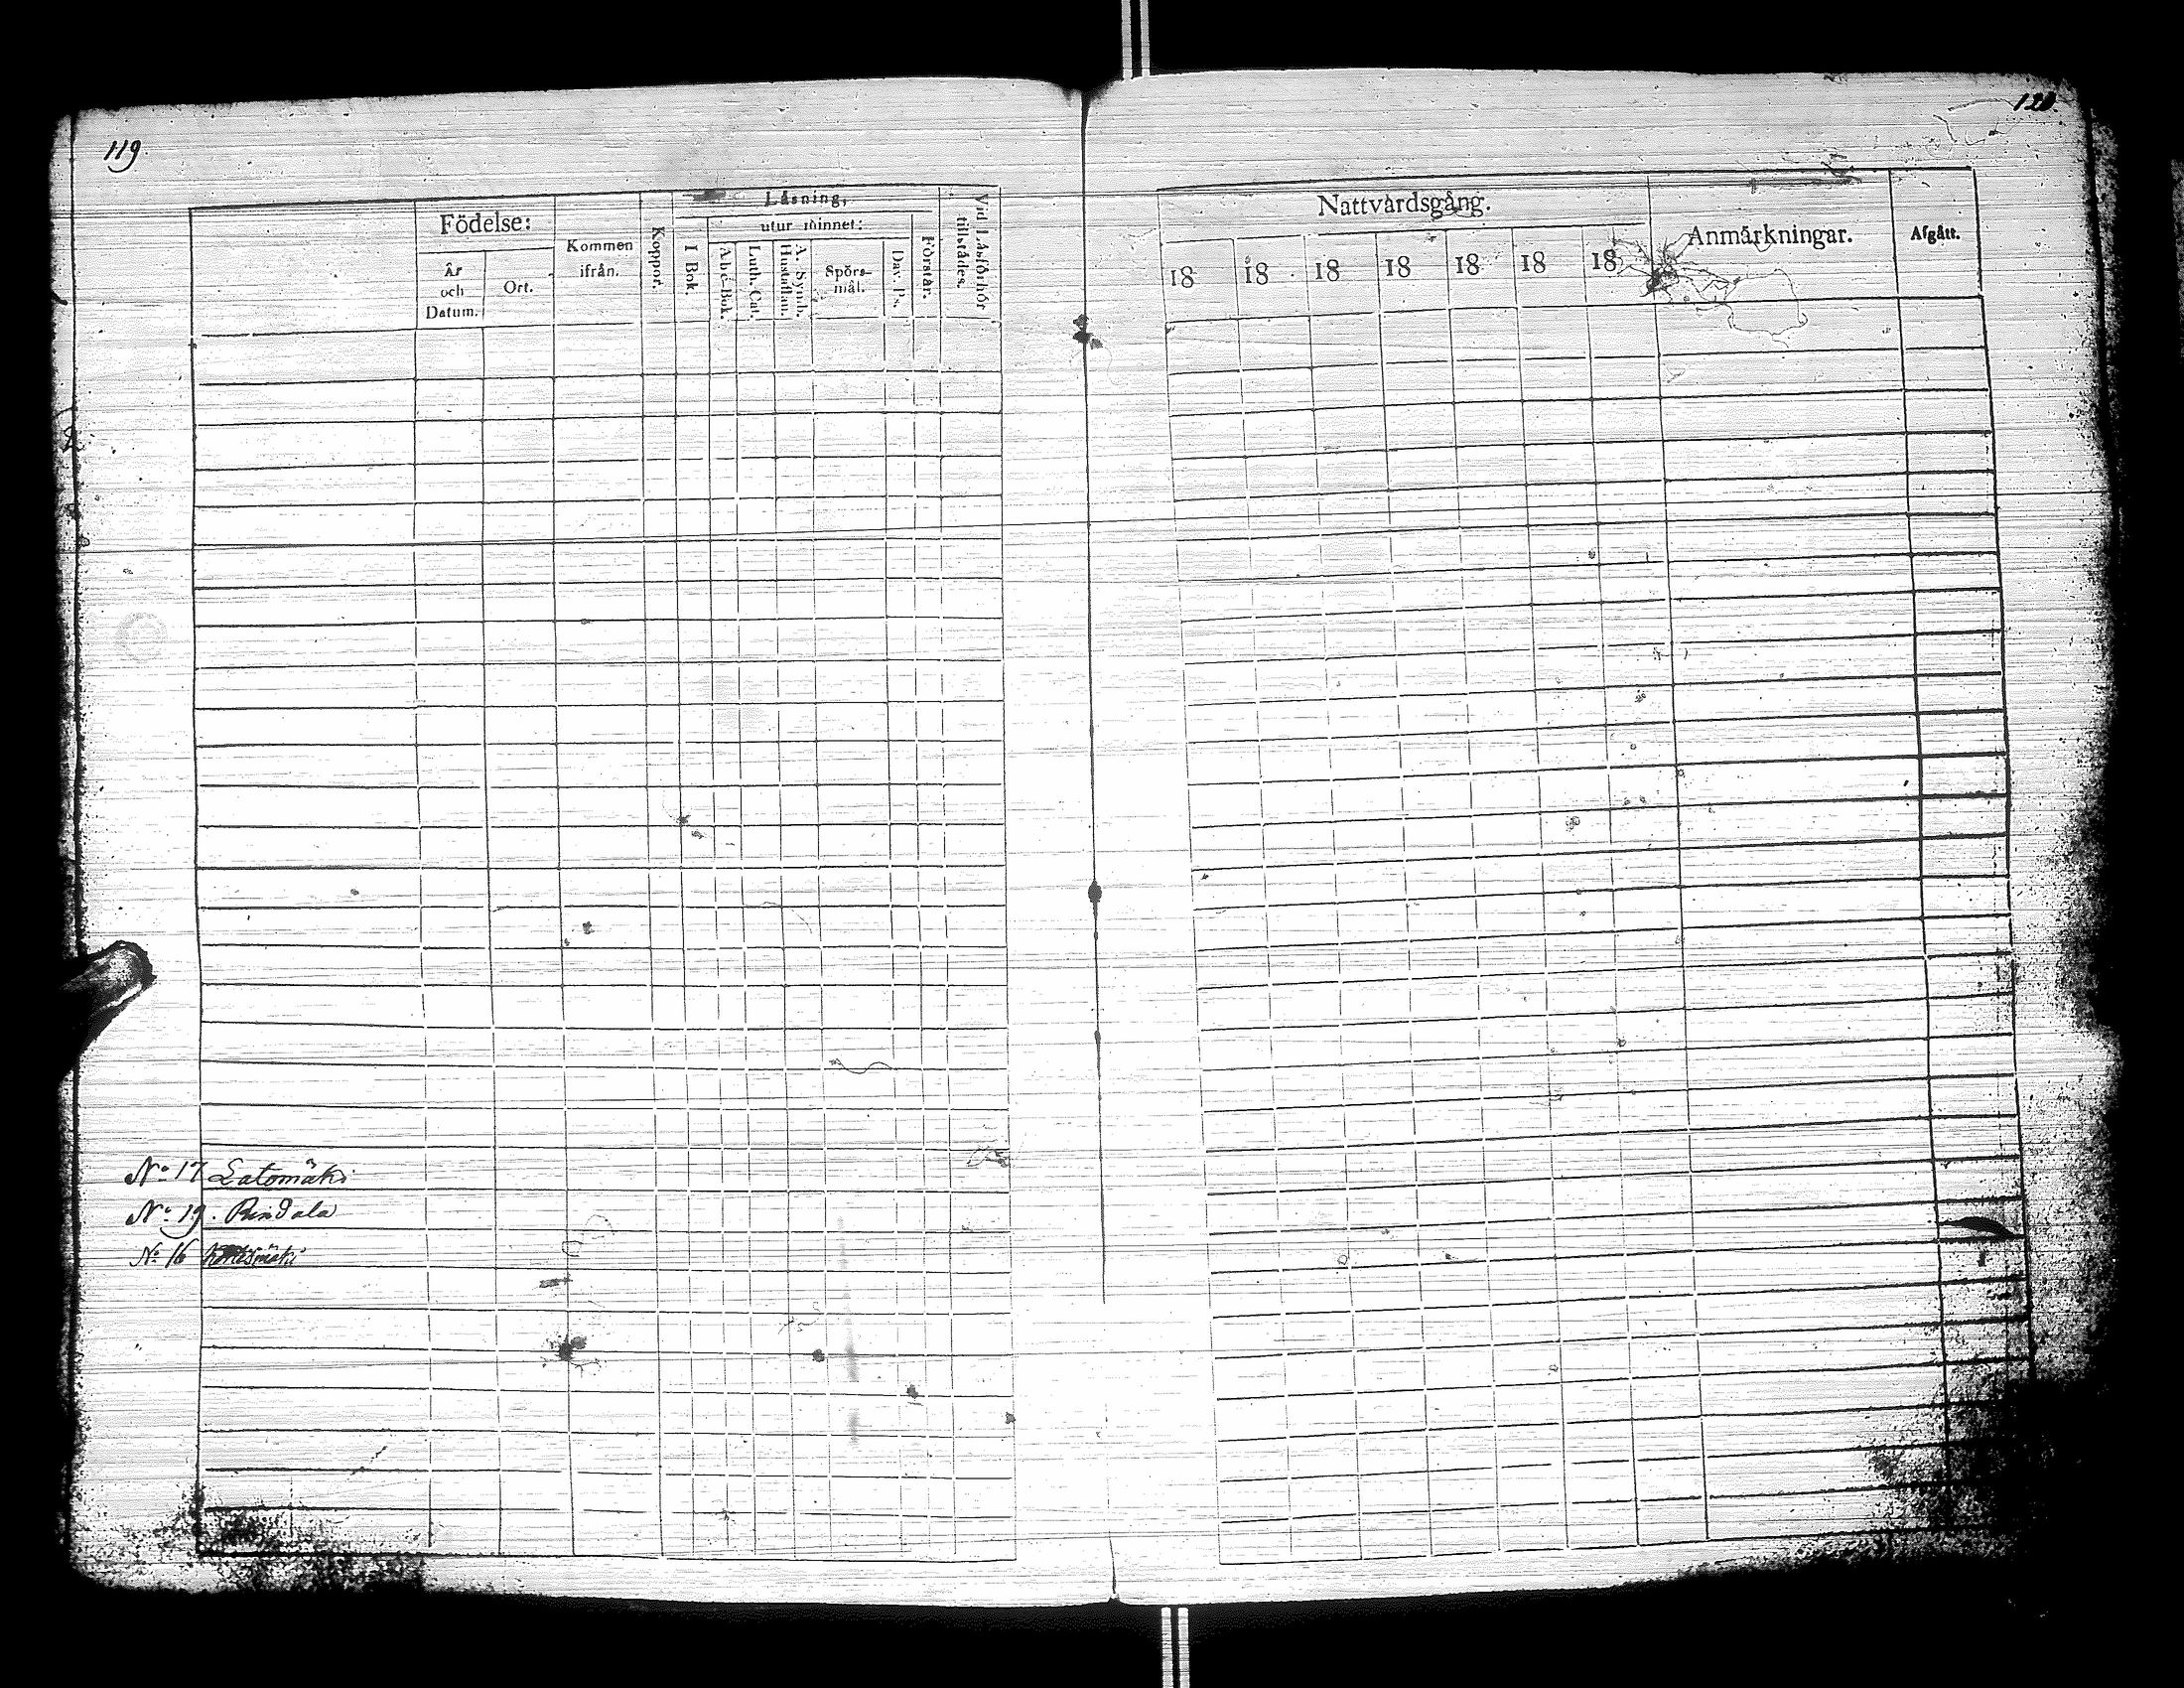 119
120.
Läsning,
Födelse:
utur minnet:
Kommen ifrån.
Koppor.
I Bok.
Abc-Bok.
Luth. Cat.
A. Symb. Hustaflan.
Spörs-
mål.
Dav. Ps.
Förstår.
Vid Läsförhör tillstädes.
År
och
Datum.
Ort.
Nattvardsgång.
Anmärkningar.
Afgått.
18 18 18 18 18 18 18
No 17 Latomäki
No 19. Rindala
No 16